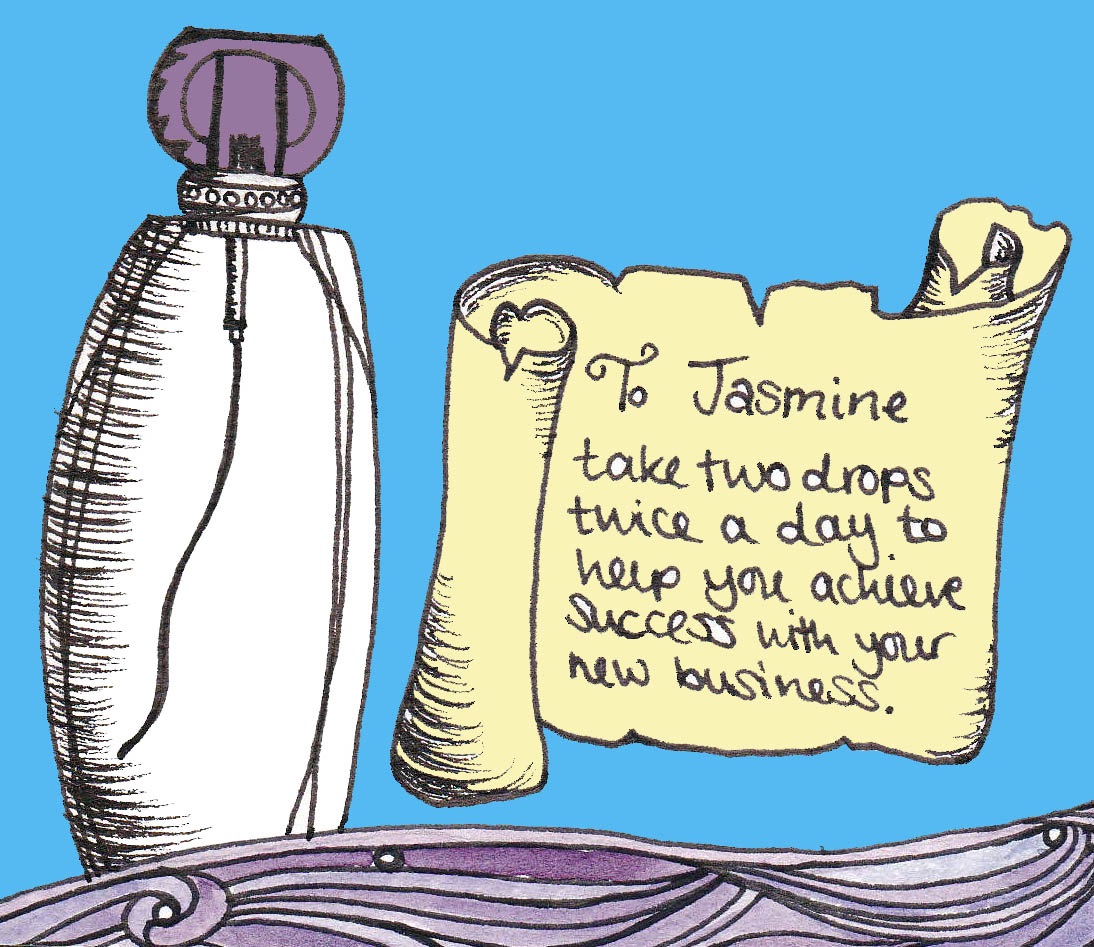 To Jasmine
take two drops
twice a day to
help you achieve
success with your
new business.